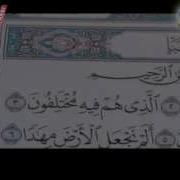 ٱلرَّحِيمِ
٢ ٱلَّذِى هُمْ فِيهِ مُخْتَلِفُونَ ٣
٥ أَلَمْ نَجْعَلِ ٱلْأَرْضَ مِهَٰدًا ٦